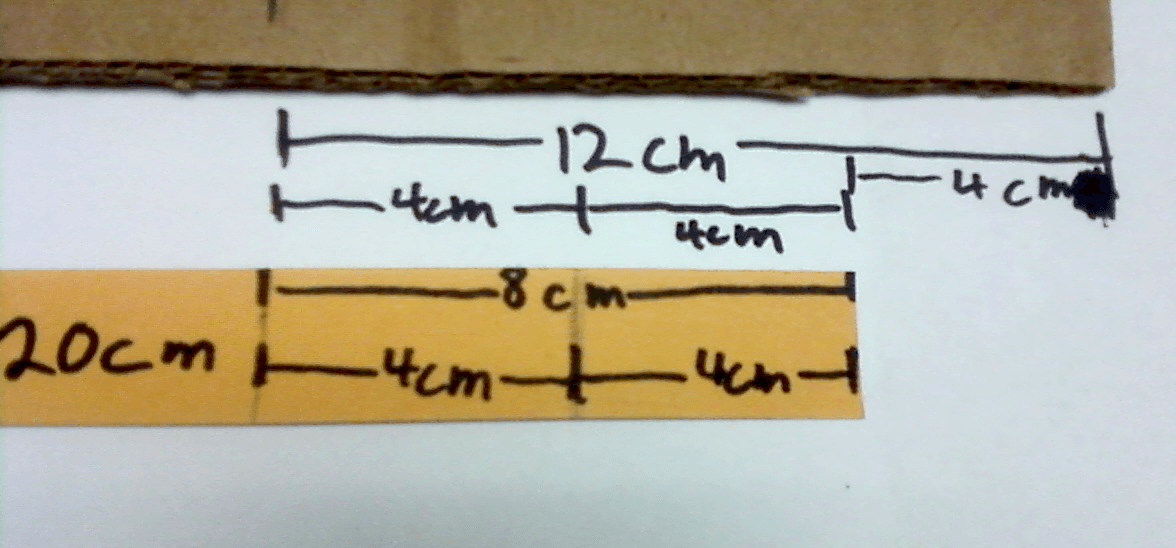 12 cm
4 cm
4cm
4cm
8 cm
20cm
4cm
4cm